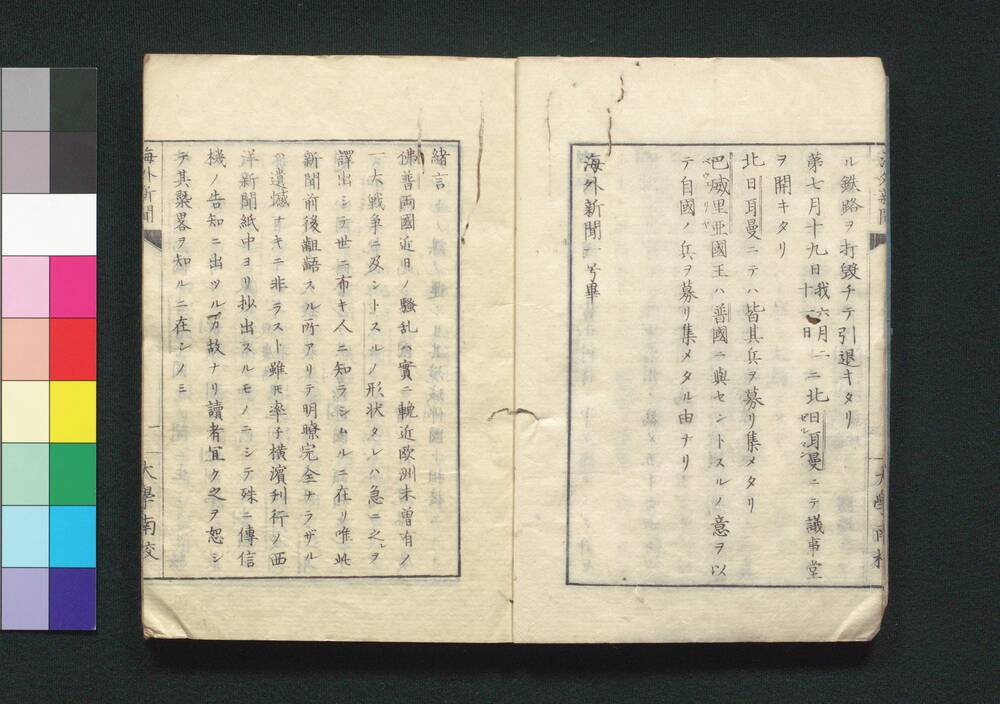 ル鉄路ヲ打毀チテ引退キタリ
第七月十九日我六月二十日ニ北日耳曼ゼルマンニテ議事堂
ヲ開キタリ
北日耳曼ニテハ皆其兵ヲ募リ集メタリ
巴威里亜國王ハ普國ニ與セントスルノ意ヲ以
テ自國ノ兵ヲ募リ集メタル由ナリ
海外新聞一号畢
緒言
佛普両國近日ノ騒乱ハ實ニ輓近欧洲未曽有ノ
一大戦争ニ及ントスルノ形状タレハ急ニ之レヲ
譯出シテ世ニ布キ人ニ知ラシムルニ在リ唯此
新聞前後齟齬スル所アリテ明瞭完全ナラザル
遺憾ナキニ非ラスト雖モ率子横濱刋行ノ西
洋新聞紙中ヨリ抄出スルモノニシテ殊ニ傳信
機ノ告知ニ出ツル方故ナリ讀者冝ク之ヲ恕シ
テ其槩畧ヲ知ルニ在ンノミ
海外新聞
一
大學南校